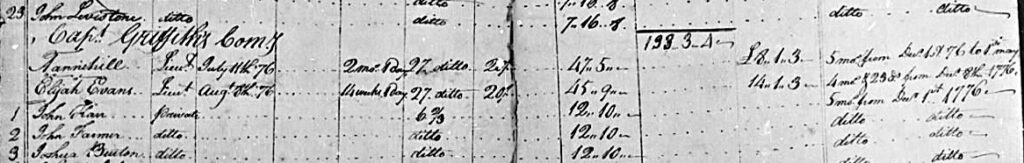 ditto
23 John Levistone ditto ditto 7 " 16 " 8 ditto ditto
Capt. Griffith's Comy 193 " 3 " 4
Tannehill Lieut July 11th 76 2 mo. Pay 27 ditto 27 47 " 5 £8 " 1 " 3 5 mo. from Decr 1st 76 to 1st may
Elijah Evans Lieut Augt 8th 76 Pay 27. ditto 20 45 " 9 14 " 1 " 3 4 mo & 23 ds from Decr 8th 1776
1 John Kair private 6 12 " 10 5 mo. from Decr 1st 1776
2 John Farmer ditto ditto 12 " 10 ditto ditto
3 Joshua Burton ditto ditto 12 " 10 ditto ditto